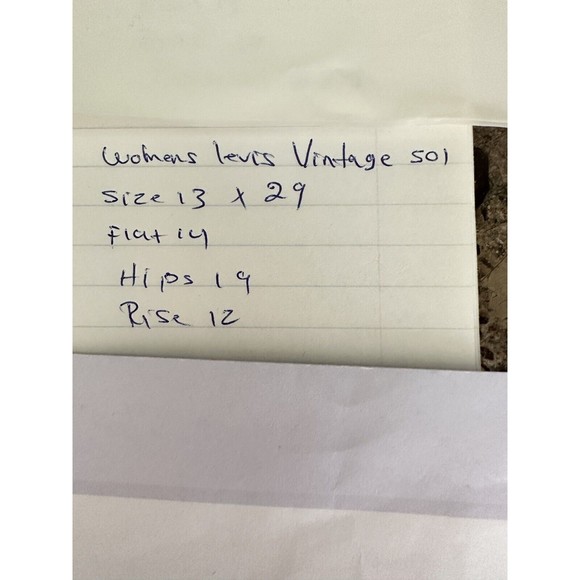 Womens levis Vintage 501
Size 13 x 29
Flat 14
Hips 19
Rise 12